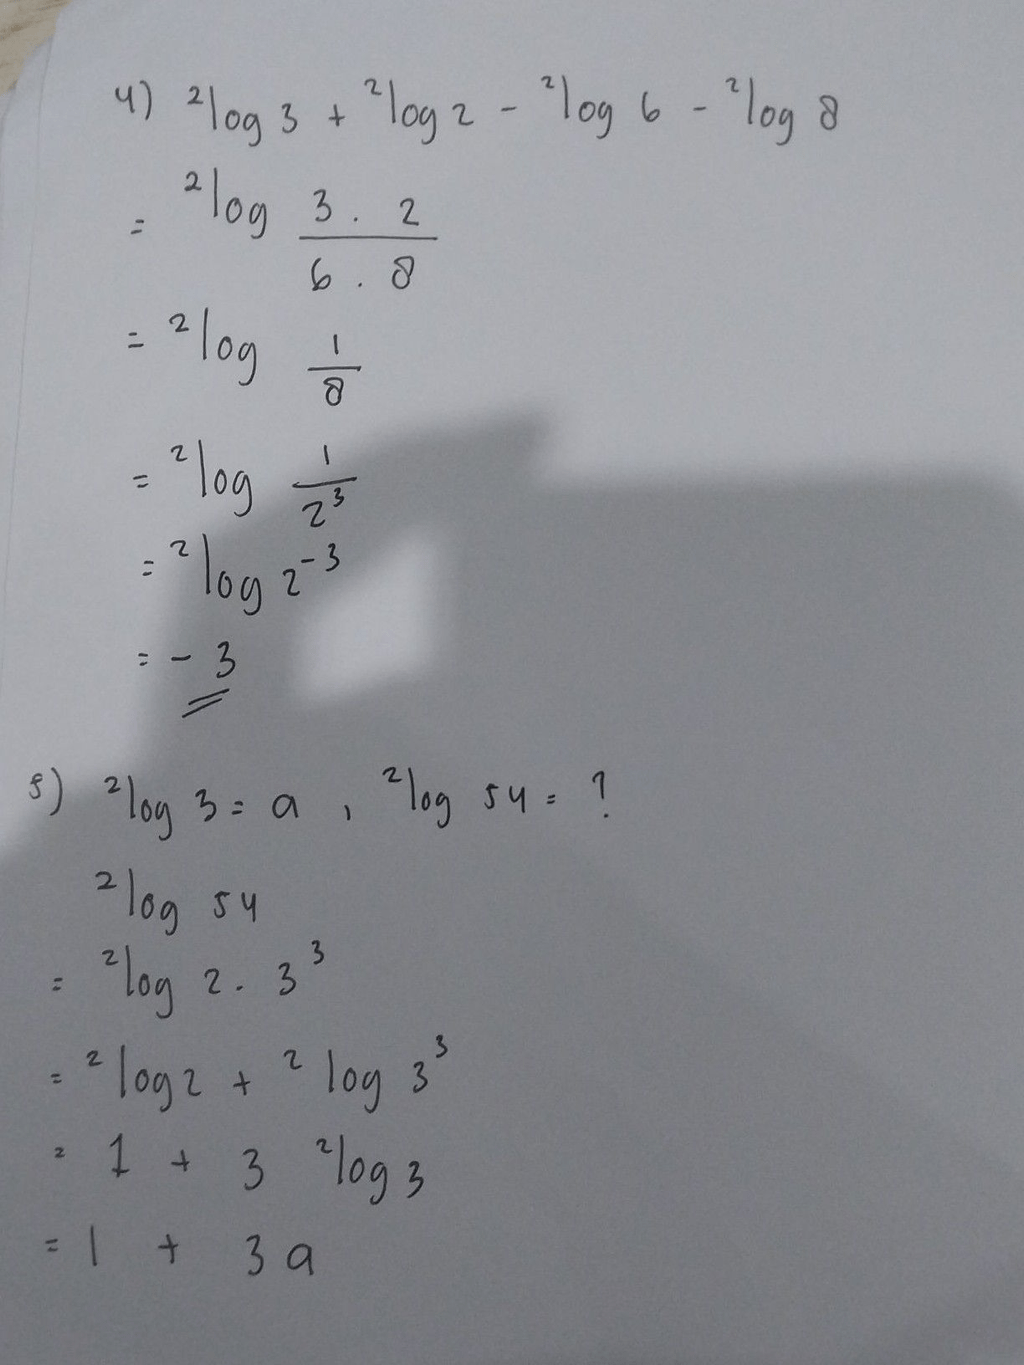 4) ²log 3 + ²log 2 - ²log 6 - ²log 8
= ²log 3 . 2 / 6 . 8
= ²log 1/8
= ²log 1/2³
= ²log 2⁻³
= - 3
5) ²log 3 = a , ²log 54 = ?
²log 54
= ²log 2 . 3³
= ²log 2 + ²log 3³
= 1 + 3 ²log 3
= 1 + 3a